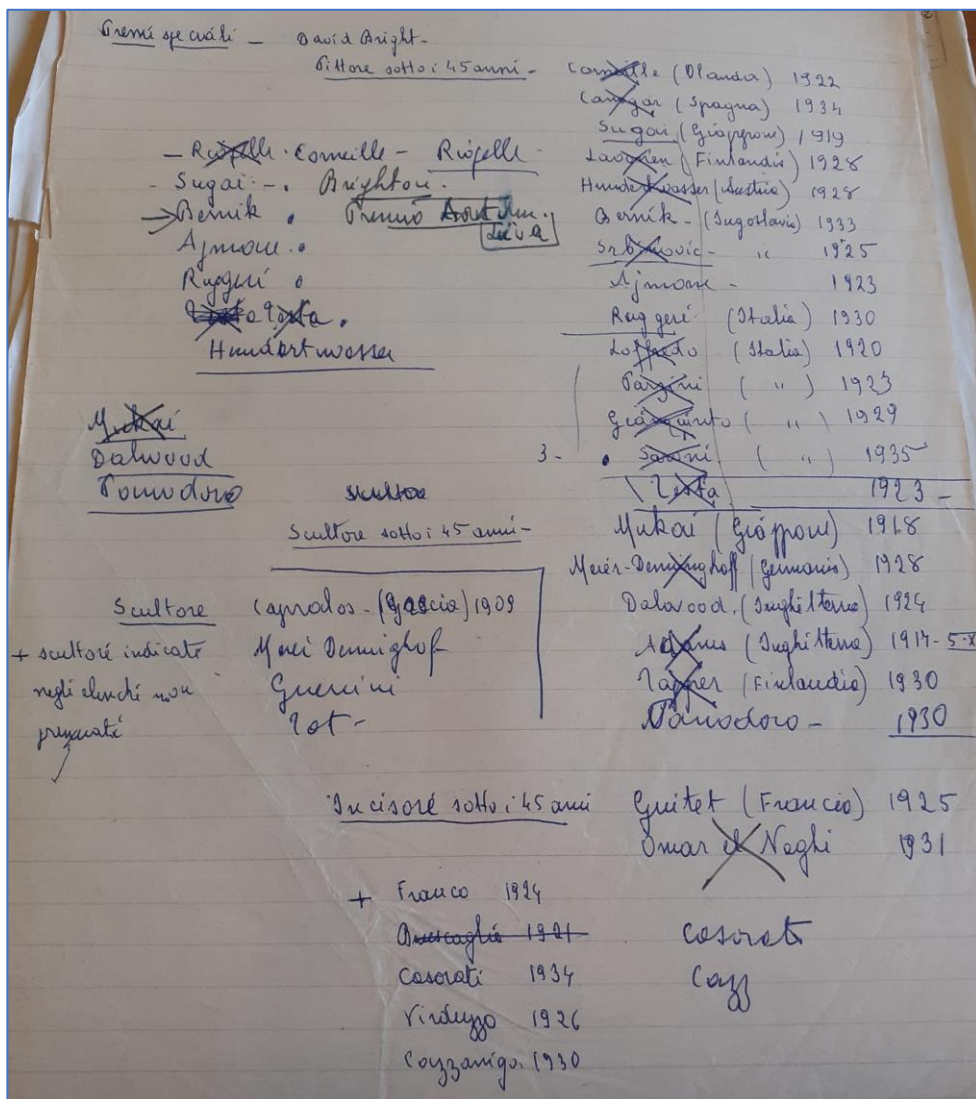 Premi speciali - David Bright -
Pittore sotto i 45 anni -
Corneille (Olanda) 1922
Canogar (Spagna) 1934
Sugai (Giappone) 1919
Laov (Finlandia) 1928
Hundertwasser (Austria) 1928
Bernik - (Jugoslavia) 1933
Srbinovic - " 1925
Ajmone - 1923
Ruggeri (Italia) 1930
Loffredo (Italia) 1920
( " ) 1923
Giaquinto ( " ) 1929
3 - . Saroni ( " ) 1935
Testa 1923 -
- Riopelle - Corneille - Riopelle -
- Sugai - . Brighton .
→ Bernik . Premio
Ajmone .
Ruggeri .
Testa Testa .
Hundertwasser
Mukai
Dalwood
Pomodoro
Scultore sotto i 45 anni -
Mukai (Giappone) 1918
Meier-Denninghoff (Germania) 1928
Dalwood. (Inghilterra) 1924
Adams (Inghilterra) 1917 -
Tapper (Finlandia) 1930
Pomodoro - 1930
Scultore
+ scultori indicati
negli elenchi non
premiati
Capralos - (Grecia) 1909
Meei Denninghof
Guerrini
Tot -
Incisore sotto i 45 anni
Guitet (Francia) 1925
Omar el Neghi 1931
+ Franco 1924
Buscaglia 1921
Casorati 1934
Virduzzo 1926
Cazzaniga 1930
Casorati
Cazz